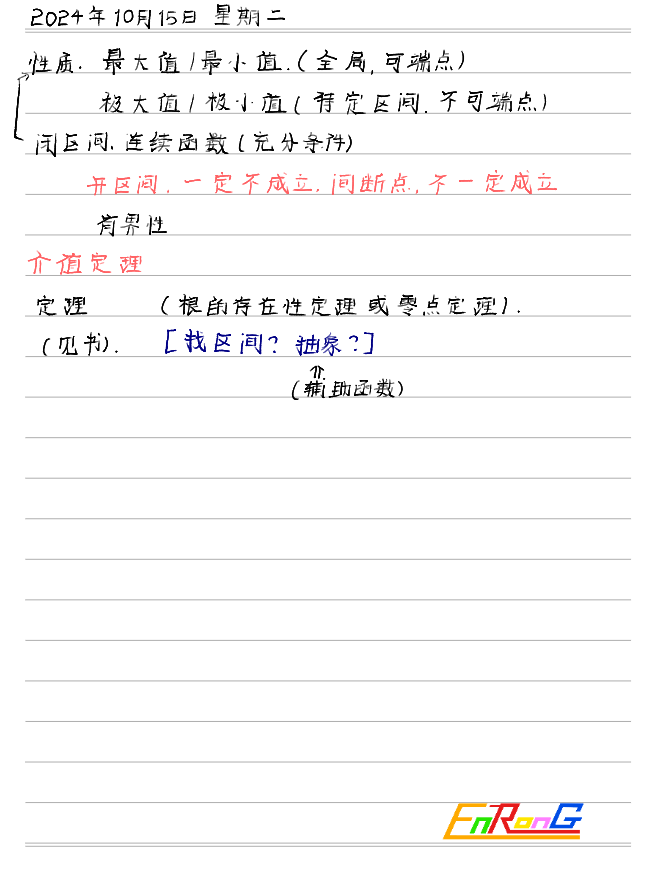 2024年10月15日 星期二
性质. 最大值/最小值.(全局,可端点)
极大值/极小值(特定区间.不可端点)
闭区间.连续函数(充分条件)
开区间.一定不成立.间断点,不一定成立
有界性
介值定理
定理 (根的存在性定理或零点定理).
(见书). [找区间? 抽象?]
⇑
(辅助函数)
EnRonG